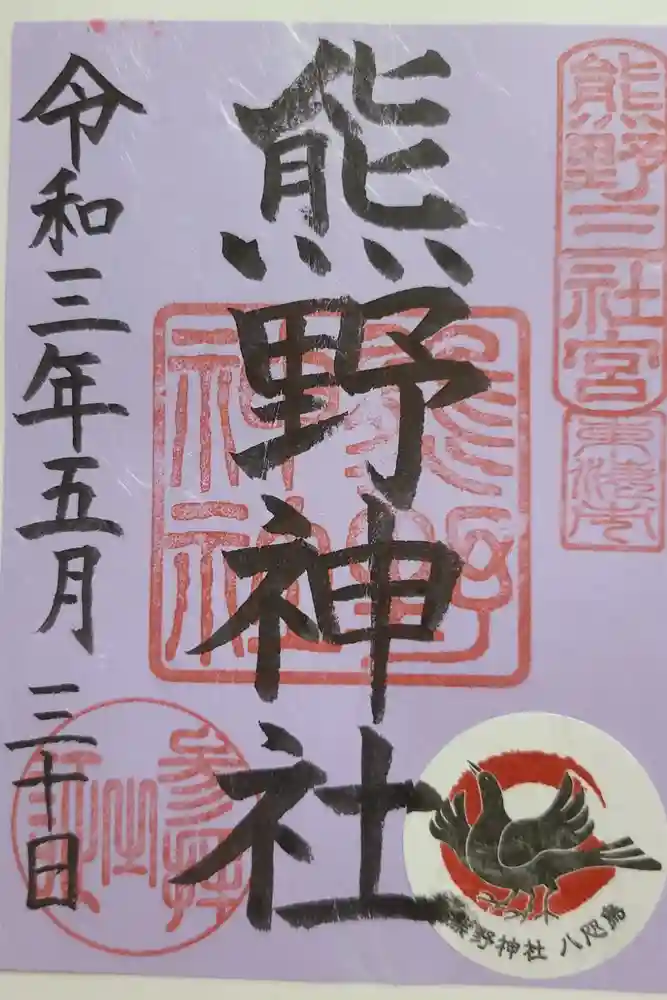 熊野三社宮
熊野神社
熊野
神社
令和三年五月三十日
参拝
熊野神社 八咫烏